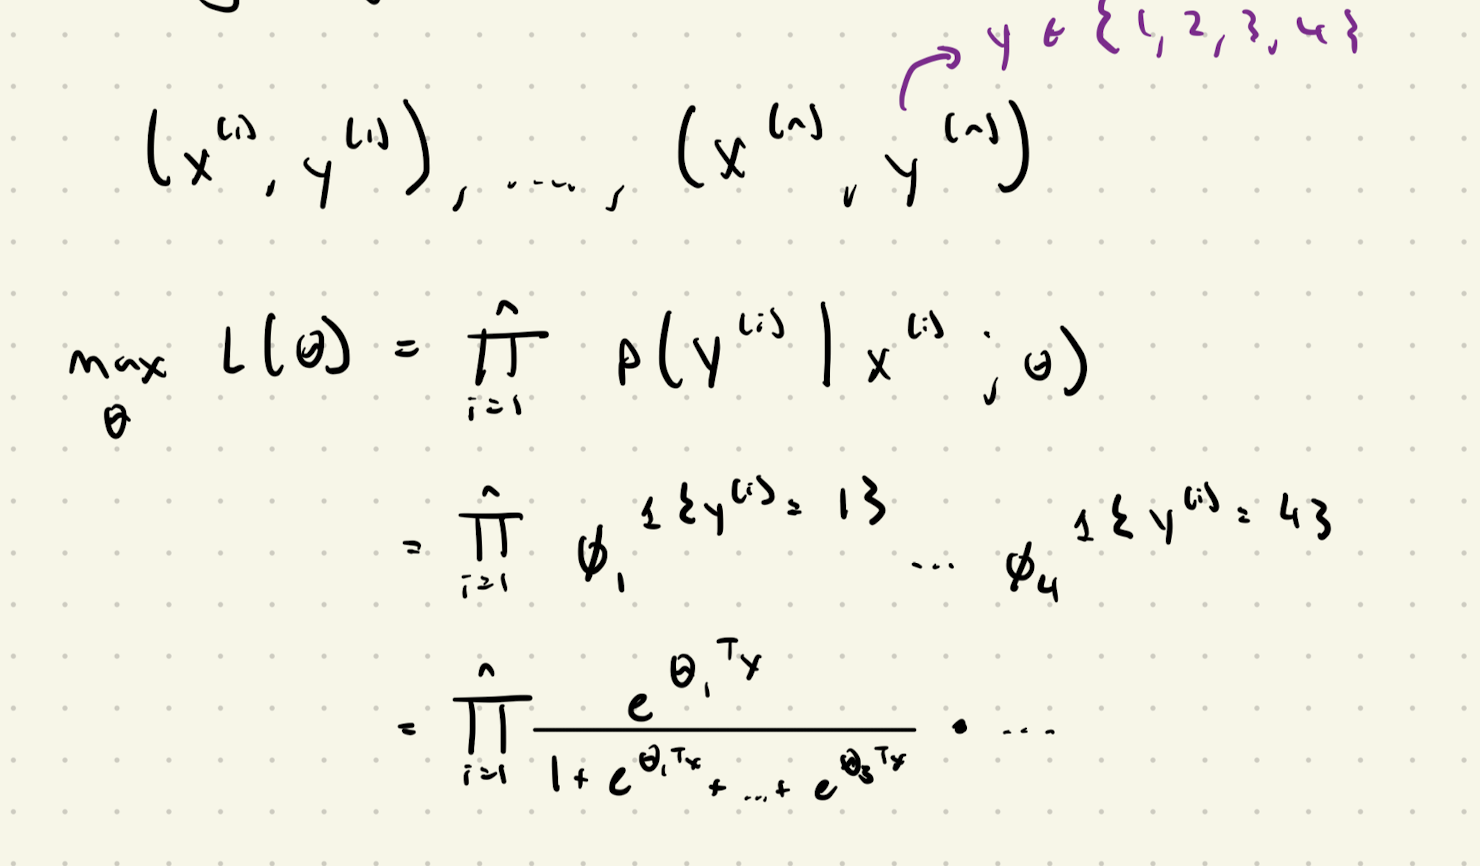 y ∈ {1, 2, 3, 4}
(x^(1), y^(1)), ...., (x^(n), y^(n))
max_θ L(θ) = ∏_{i=1}^{n} p(y^(i) | x^(i) ; θ)
= ∏_{i=1}^{n} φ_1^{1{y^(i) = 1}} ... φ_4^{1{y^(i) = 4}}
= ∏_{i=1}^{n} e^{θ_1^T x} / (1 + e^{θ_1^T x} + ... + e^{θ_3^T x}) • ...